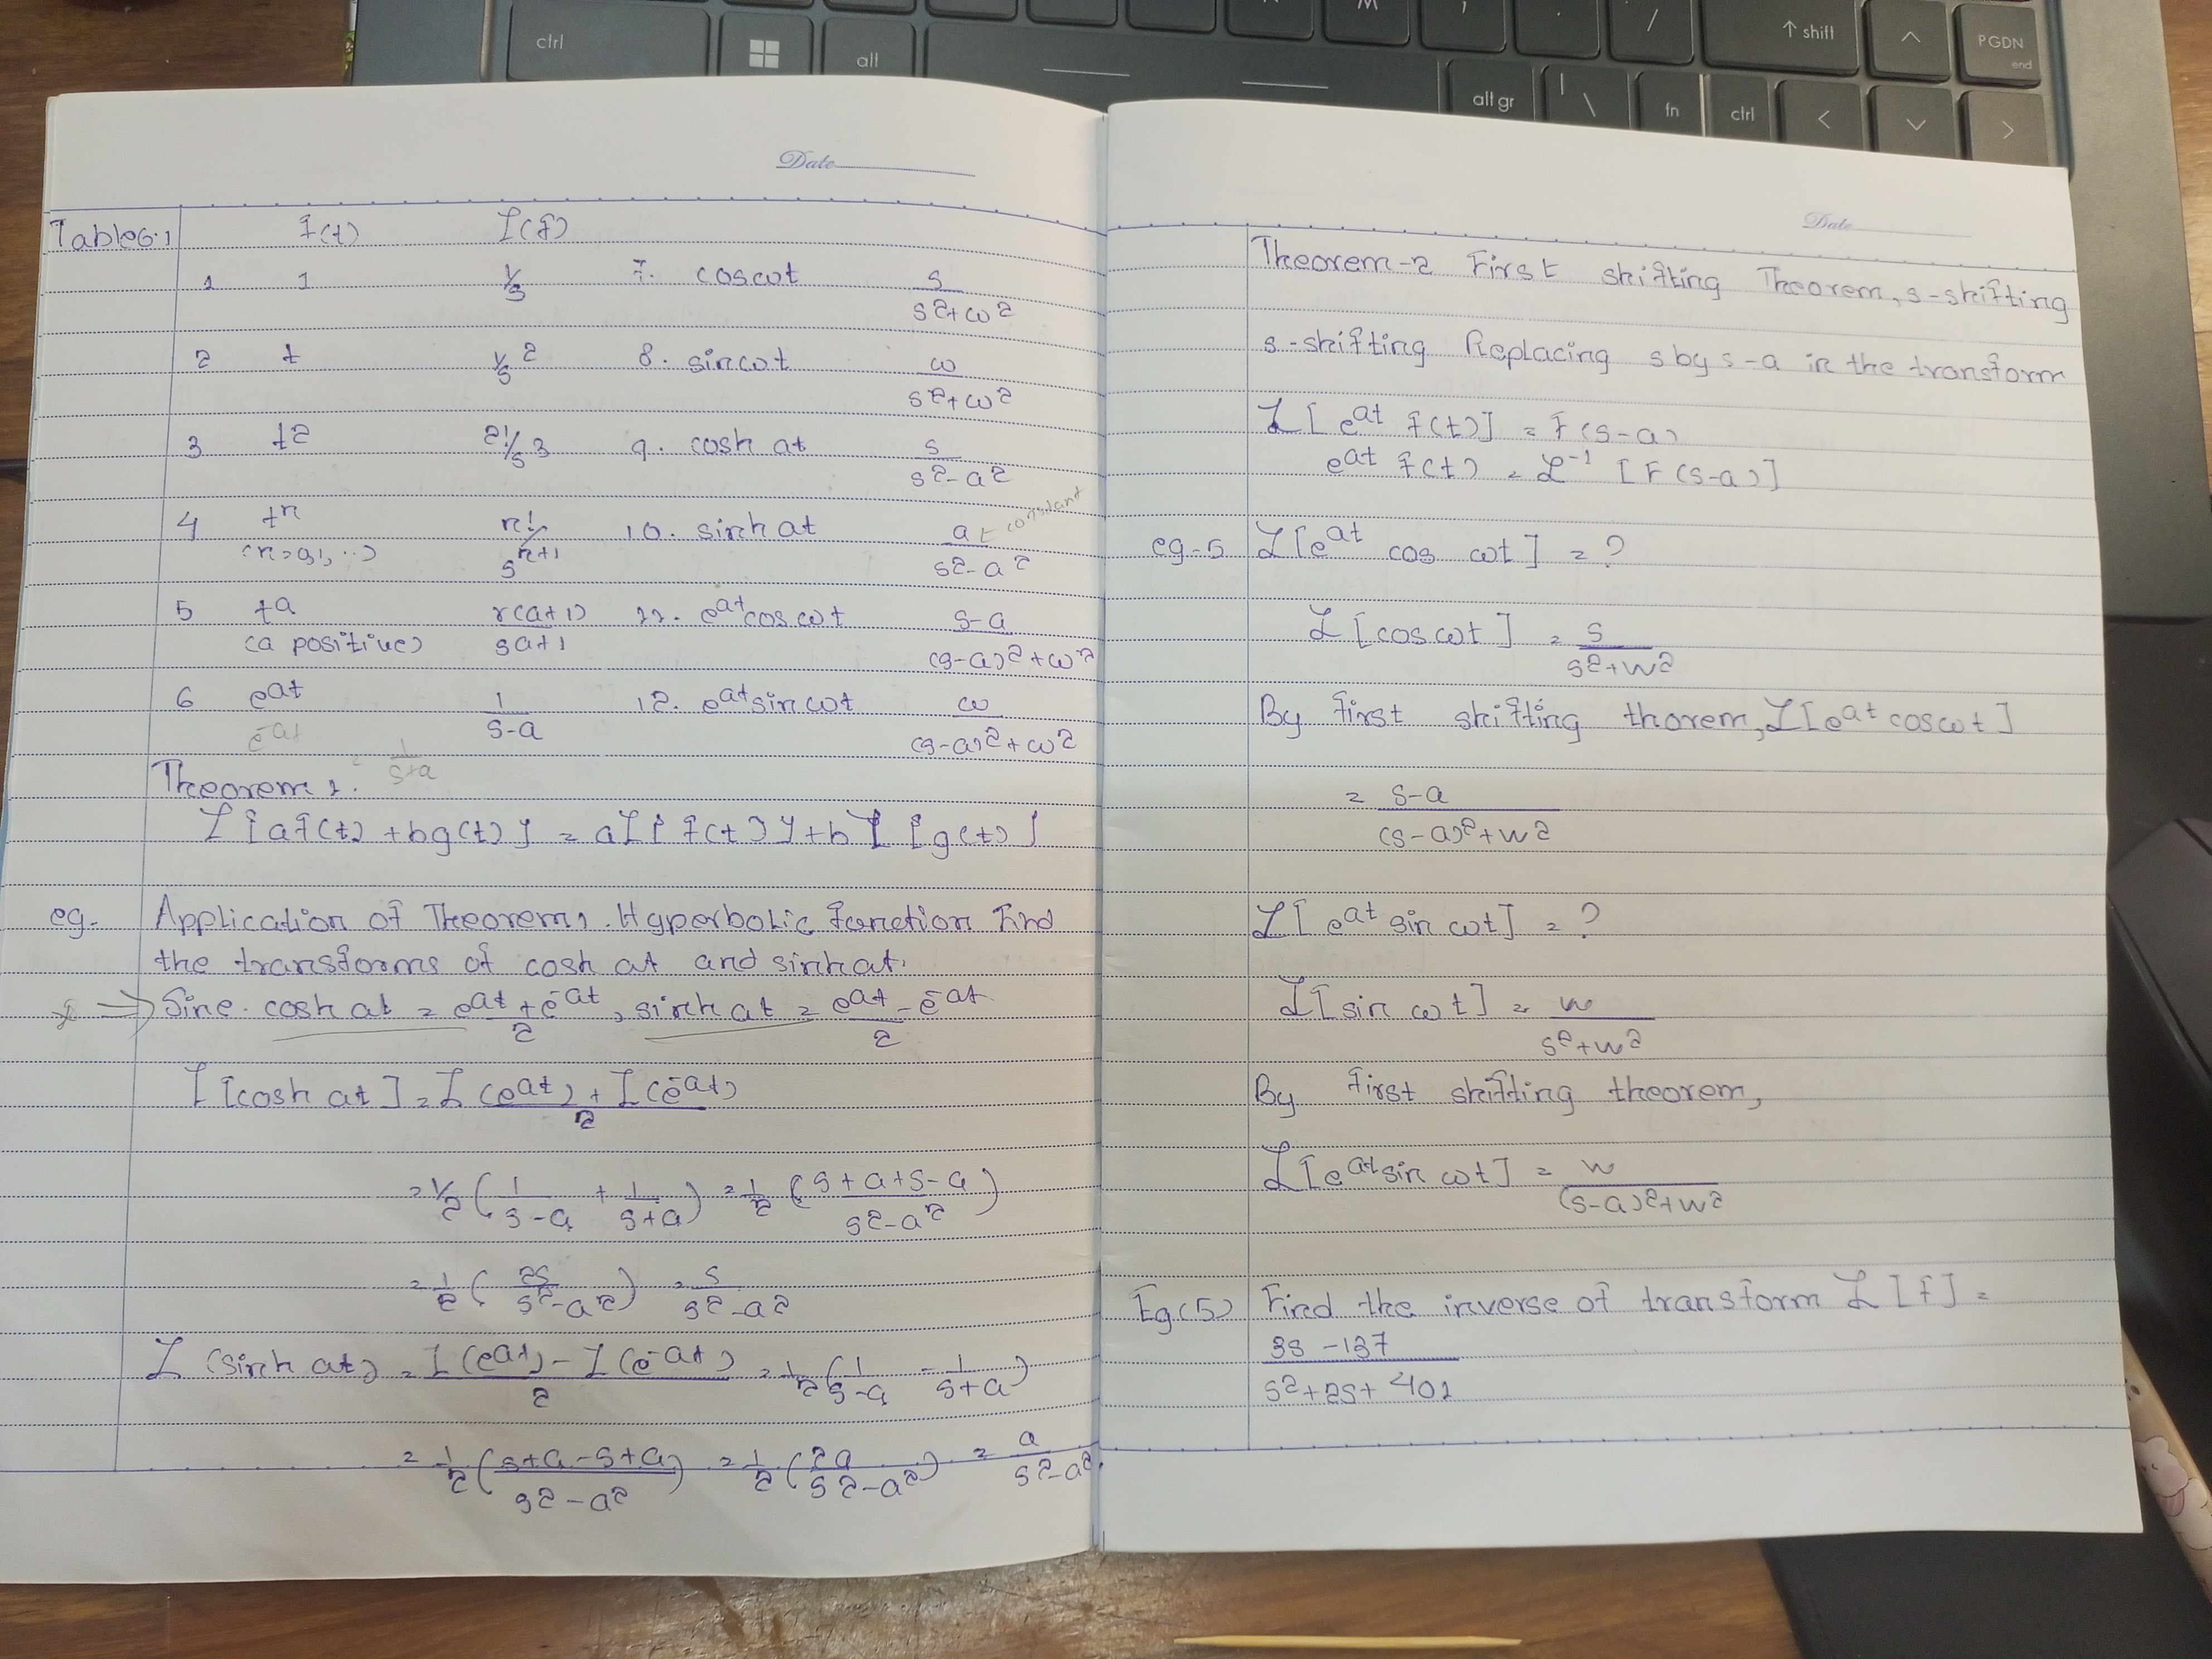 ctrl
alt
alt gr
fn
ctrl
↑ shift
PGDN
end
M
/
\
<
>
Date
Table 6.1 f(t) L(f)
1 1 1/s 7. cos ωt s/(s²+ω²)
2 t 1/s² 8. sin ωt ω/(s²+ω²)
3 t² 2!/s³ 9. cosh at s/(s²-a²)
4 tⁿ (n=0,1,...) n!/sⁿ⁺¹ 10. sinh at a/(s²-a²) constant
5 tᵃ (a positive) r(a+1)/sᵃ⁺¹ 11. eᵃᵗ cos ωt (s-a)/((s-a)²+ω²)
6 eᵃᵗ 1/(s-a) 12. eᵃᵗ sin ωt ω/((s-a)²+ω²)
e⁻ᵃᵗ = 1/(s+a)
Theorem 1.
L{af(t)+bg(t)} = aL{f(t)}+bL{g(t)}
eg. Application of Theorem 1. Hyperbolic function Find
the transforms of cosh at and sinh at.
⇒ Sine. cosh at = (eᵃᵗ+e⁻ᵃᵗ)/2, sinh at = (eᵃᵗ-e⁻ᵃᵗ)/2
L[cosh at] = (L(eᵃᵗ)+L(e⁻ᵃᵗ))/2
= 1/2 (1/(s-a) + 1/(s+a)) = 1/2 ((s+a+s-a)/(s²-a²))
= 1/2 (2s/(s²-a²)) = s/(s²-a²)
L(sinh at) = (L(eᵃᵗ)-L(e⁻ᵃᵗ))/2 = 1/2 (1/(s-a) - 1/(s+a))
= 1/2 ((s+a-s+a)/(s²-a²)) = 1/2 (2a/(s²-a²)) = a/(s²-a²).
Date
Theorem-2 First shifting Theorem, s-shifting
s-shifting Replacing s by s-a in the transform
L[eᵃᵗ f(t)] = F(s-a)
eᵃᵗ f(t) = L⁻¹ [F(s-a)]
eg-5 L[eᵃᵗ cos ωt] = ?
L[cos ωt] = s/(s²+w²)
By first shifting thorem, L[eᵃᵗ cos ωt]
= (s-a)/((s-a)²+w²)
L[eᵃᵗ sin ωt] = ?
L[sin ωt] = w/(s²+w²)
By first shifting theorem,
L[eᵃᵗ sin ωt] = w/((s-a)²+w²)
Eg(5) Find the inverse of transform L[f] =
(3s-137)/(s²+2s+401)